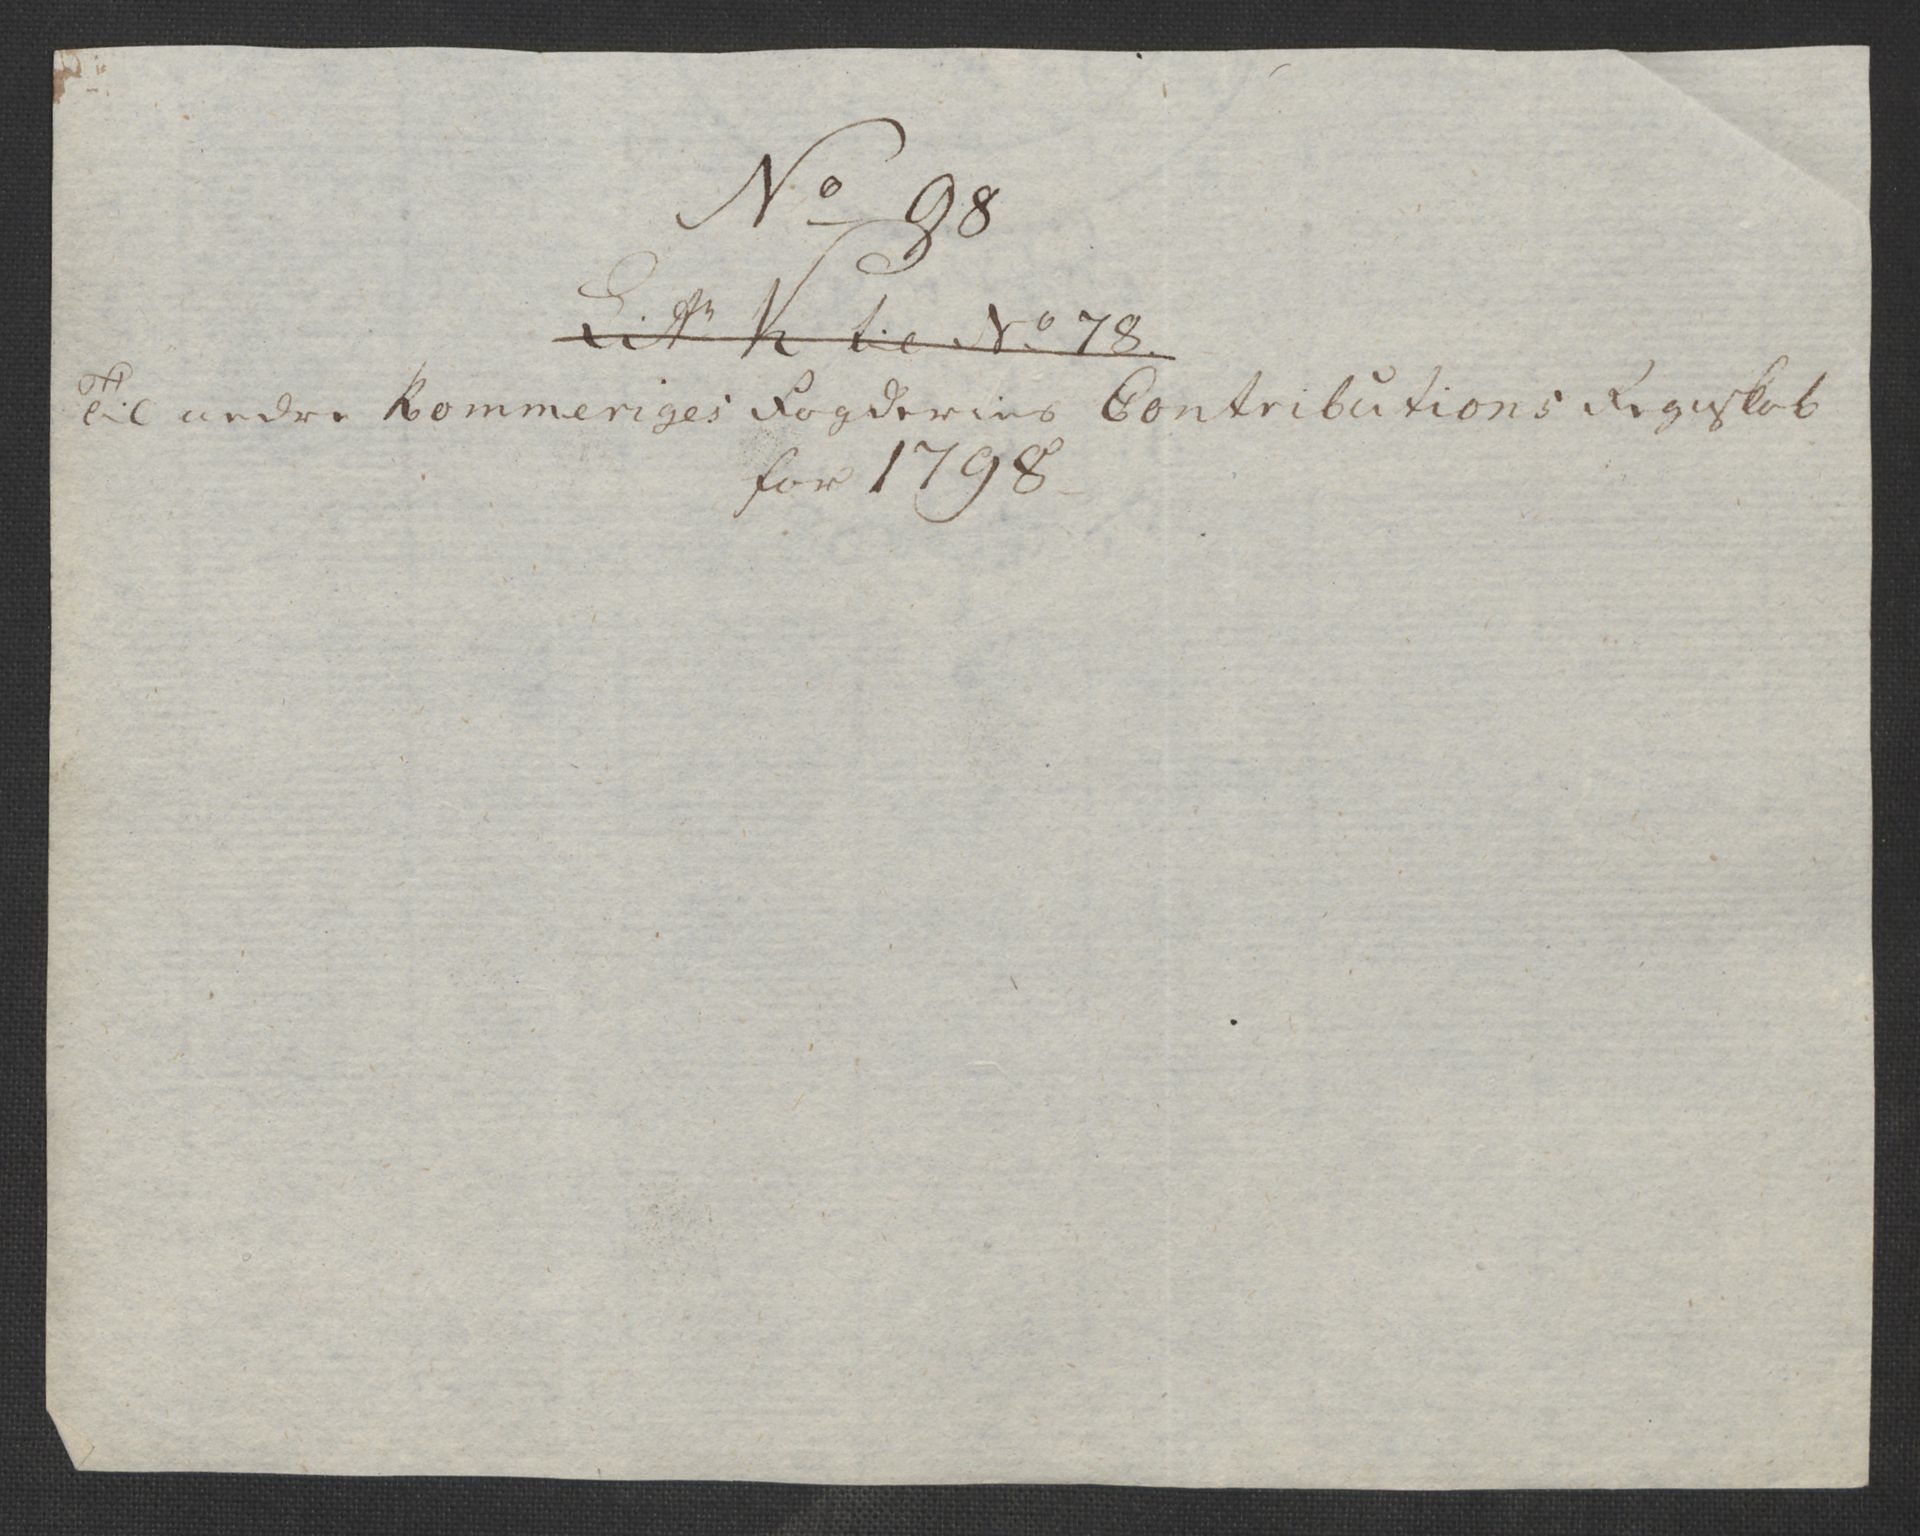 No 98
Litr K tie No 78.
Til nedre Rommeriges Fogderies Contributions Regnskab
for 1798